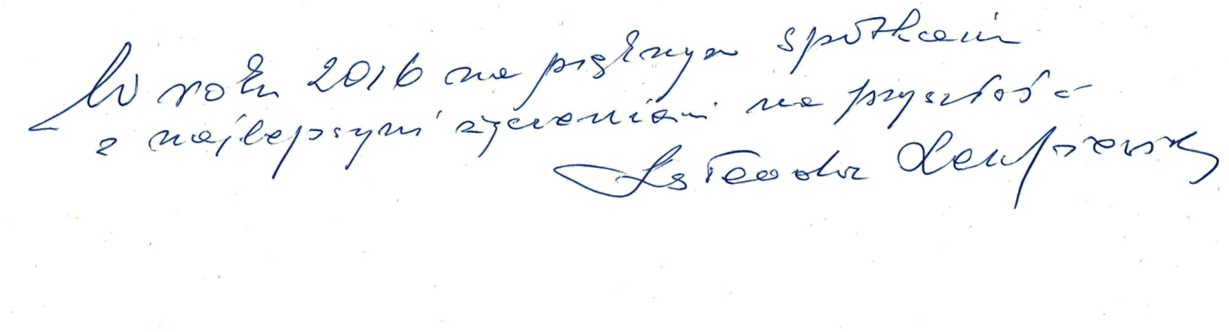 W roku 2016 na pięknym spotkaniu
z najlepszymi życzeniami na przyszłość -
Ks Teodor